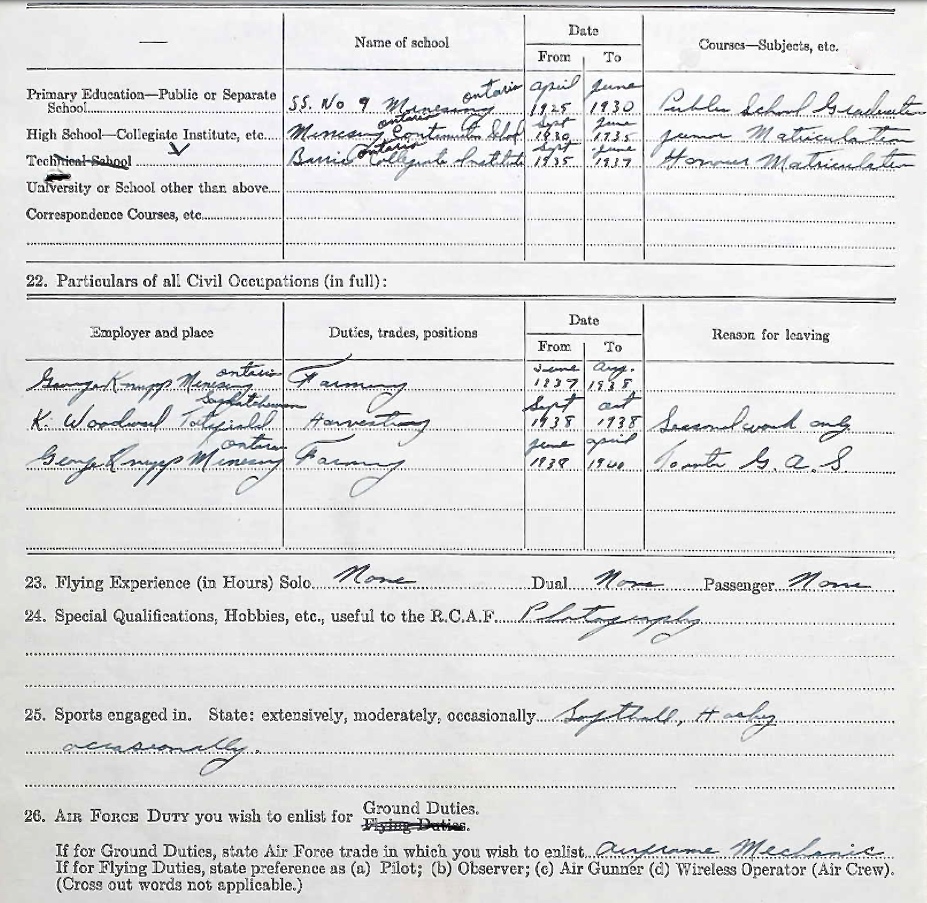 Date
— Name of school Courses—Subjects, etc.
From To
ontario april June
Primary Education—Public or Separate
School SS. No 9 Minesing 1925 1930 Public School Graduation
ontario Sept June
High School—Collegiate Institute, etc. Minesing Continuation School 1930 1935 junior Matriculation
ontario Sept June
Technical School Barrie Collegiate Institute 1935 1937 Honour Matriculation
University or School other than above
Correspondence Courses, etc
22. Particulars of all Civil Occupations (in full):
Date
Employer and place Duties, trades, positions Reason for leaving
From To
ontario June Aug.
George Knupp Minesing Farming 1937 1938
Saskatchewan Sept oct
K. Woodward Harvesting 1938 1938 Seasonal work only
ontario June april
George Knupp Minesing Farming 1938 1940 G. A. S
23. Flying Experience (in Hours) Solo None Dual None Passenger None
24. Special Qualifications, Hobbies, etc., useful to the R.C.A.F. Photography
25. Sports engaged in. State: extensively, moderately, occasionally Softball, Hockey
occasionally.
26. AIR FORCE DUTY you wish to enlist for Ground Duties.
Flying Duties.
If for Ground Duties, state Air Force trade in which you wish to enlist Airframe Mechanic
If for Flying Duties, state preference as (a) Pilot; (b) Observer; (c) Air Gunner (d) Wireless Operator (Air Crew).
(Cross out words not applicable.)